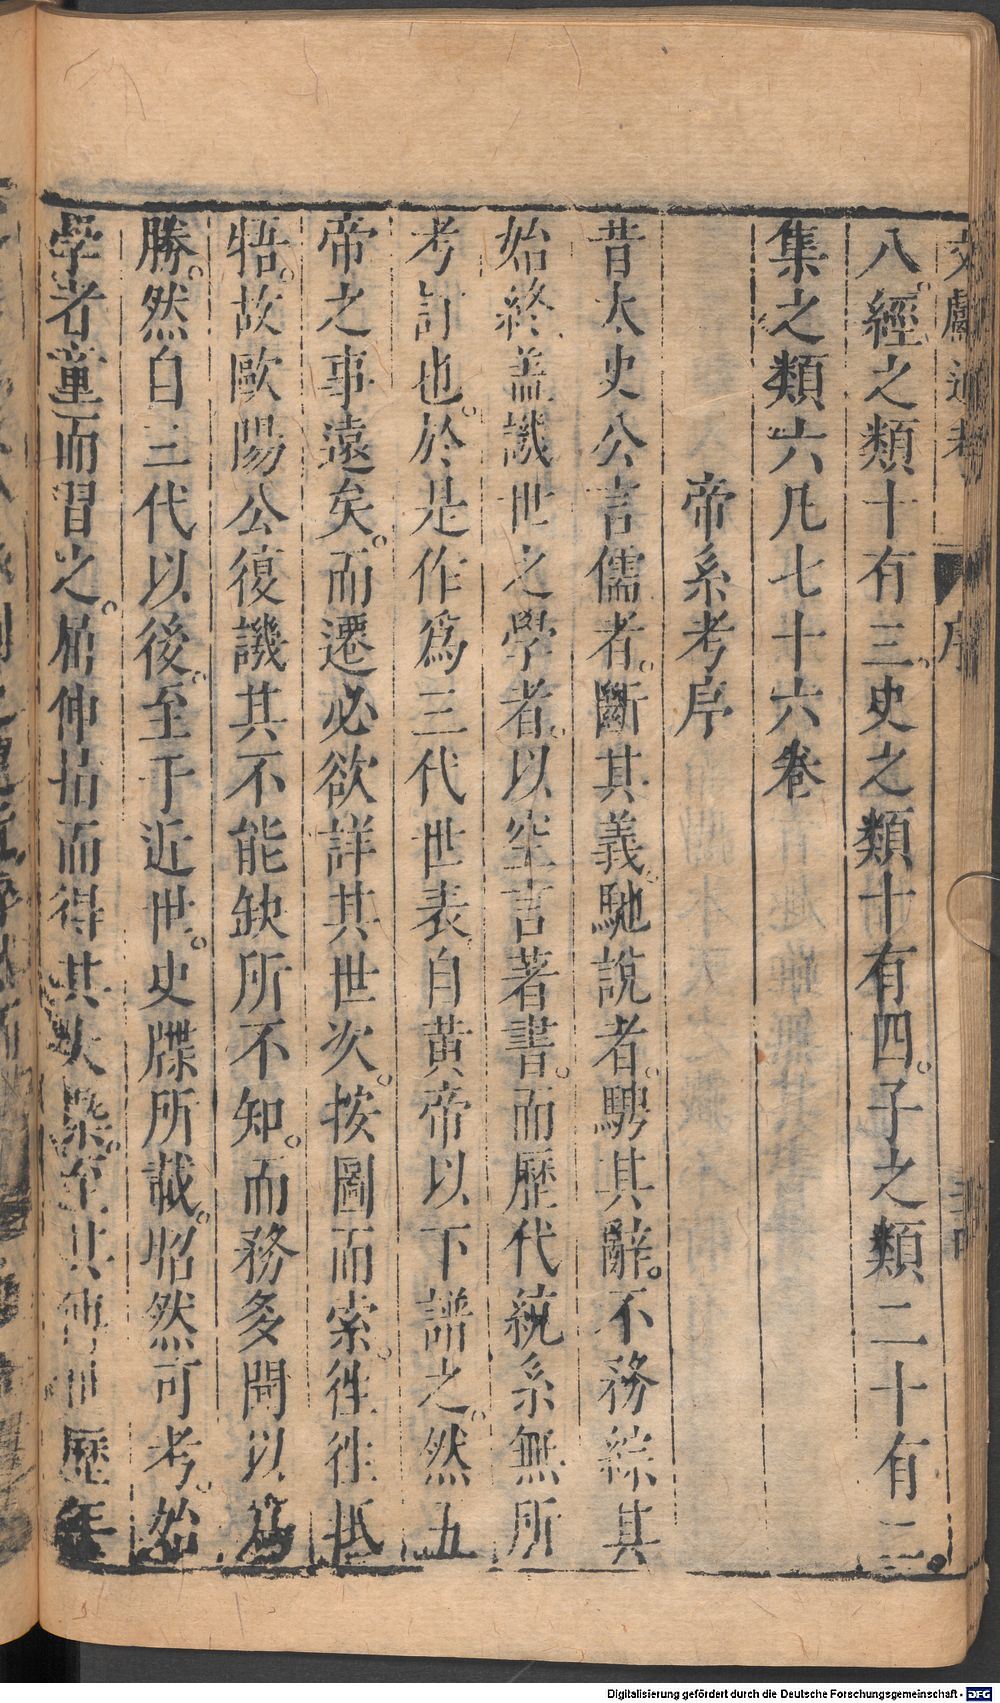 文獻通考 序
八經之類十有三史之類十有四子之類二十有二
集之類六凡七十六卷
帝系考序
昔太史公言儒者斷其義馳說者騁其辭不務綜其
始終盖譏世之學者以空言著書而歷代統系無所
考訂也於是作爲三代世表自黃帝以下譜之然五
帝之事遠矣而遷必欲詳其世次按圖而索徃徃抵
牾故歐陽公復譏其不能缺所不知而務多聞以爲
勝然自三代以後至于近世史牒所載昭然可考始
學者童而習之屈伸指而得其大槩至其傳世歷年
Digitalisierung gefördert durch die Deutsche Forschungsgemeinschaft - DFG